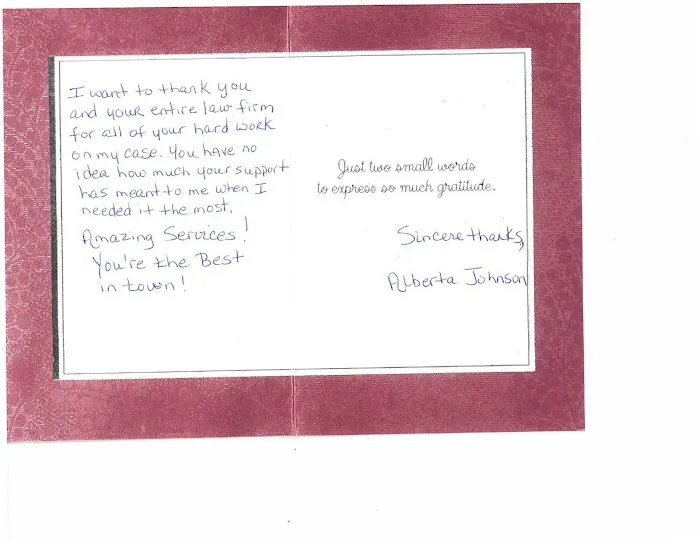 I want to thank you
and your entire law firm
for all of your hard work
on my case. You have no
idea how much your support
has meant to me when I
needed it the most.
Amazing Services!
You're the Best
in town!
Just two small words
to express so much gratitude.
Sincere thanks,
Alberta Johnson